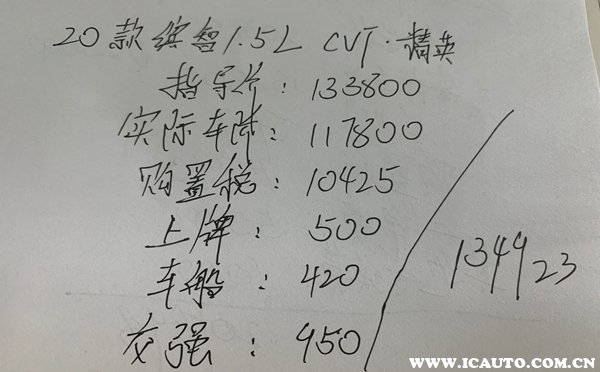 20款缤智1.5L CVT·精英
指导价：133800
实际车价：117800
购置税：10425
上牌：500
车船：420
交强：950
134923
WWW.ICAUTO.COM.CN